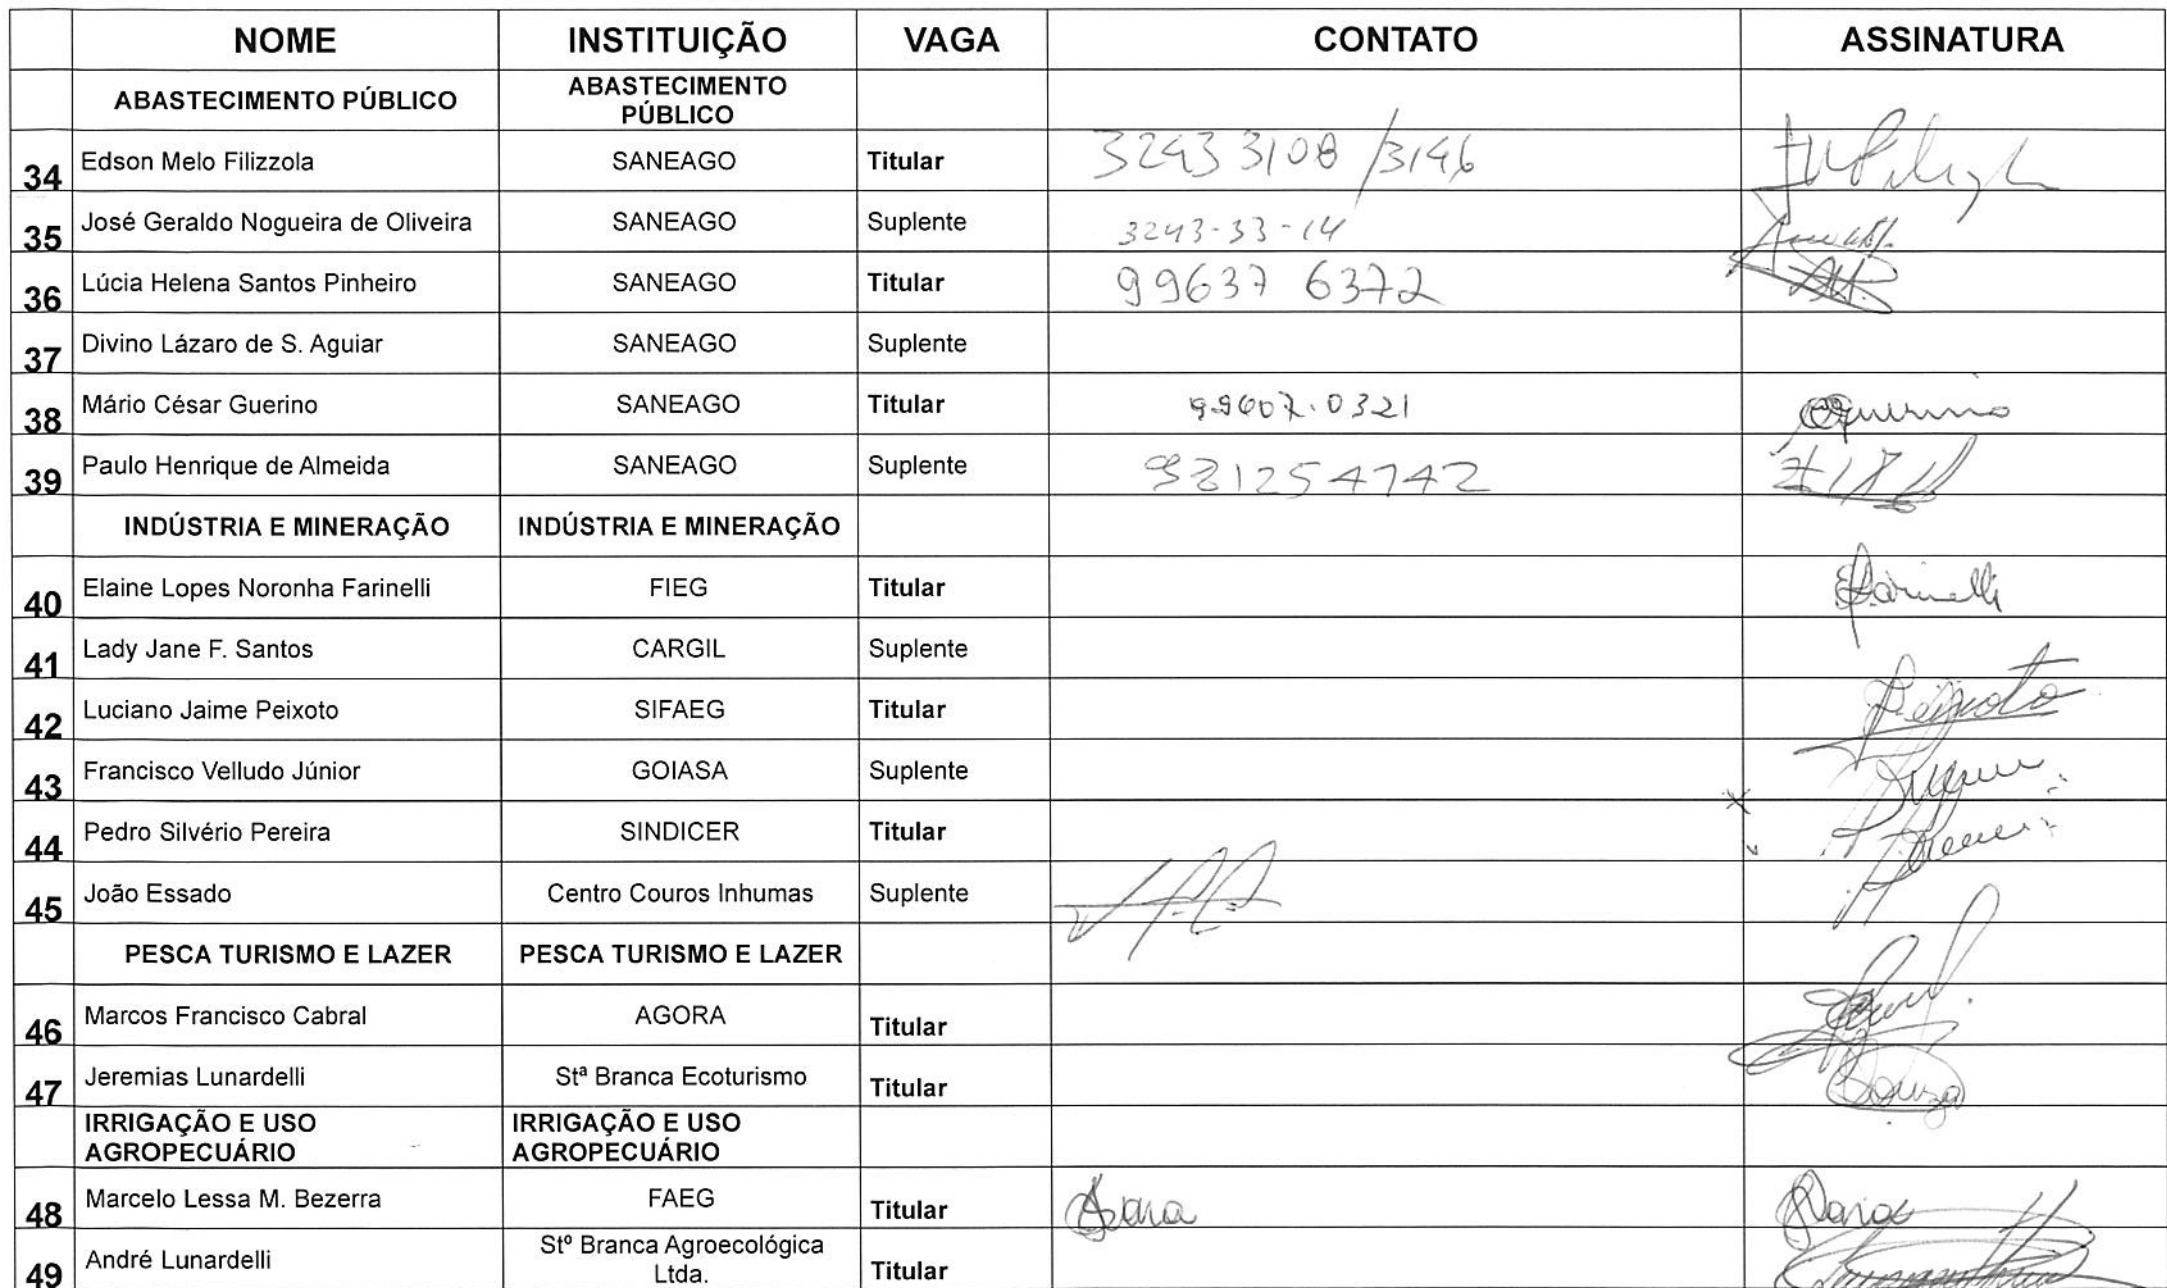 NOME INSTITUIÇÃO VAGA CONTATO ASSINATURA
ABASTECIMENTO PÚBLICO ABASTECIMENTO PÚBLICO
34 Edson Melo Filizzola SANEAGO Titular 3243 3108 /3146
35 José Geraldo Nogueira de Oliveira SANEAGO Suplente 3243-33-14
36 Lúcia Helena Santos Pinheiro SANEAGO Titular 99637 6372
37 Divino Lázaro de S. Aguiar SANEAGO Suplente
38 Mário César Guerino SANEAGO Titular 99607.0321 Guerino
39 Paulo Henrique de Almeida SANEAGO Suplente 981254742
INDÚSTRIA E MINERAÇÃO INDÚSTRIA E MINERAÇÃO
40 Elaine Lopes Noronha Farinelli FIEG Titular EFarinelli
41 Lady Jane F. Santos CARGIL Suplente
42 Luciano Jaime Peixoto SIFAEG Titular Peixoto
43 Francisco Velludo Júnior GOIASA Suplente
44 Pedro Silvério Pereira SINDICER Titular
45 João Essado Centro Couros Inhumas Suplente
PESCA TURISMO E LAZER PESCA TURISMO E LAZER
46 Marcos Francisco Cabral AGORA Titular
47 Jeremias Lunardelli Stª Branca Ecoturismo Titular Souza
IRRIGAÇÃO E USO AGROPECUÁRIO IRRIGAÇÃO E USO AGROPECUÁRIO
48 Marcelo Lessa M. Bezerra FAEG Titular
49 André Lunardelli Stº Branca Agroecológica Ltda. Titular